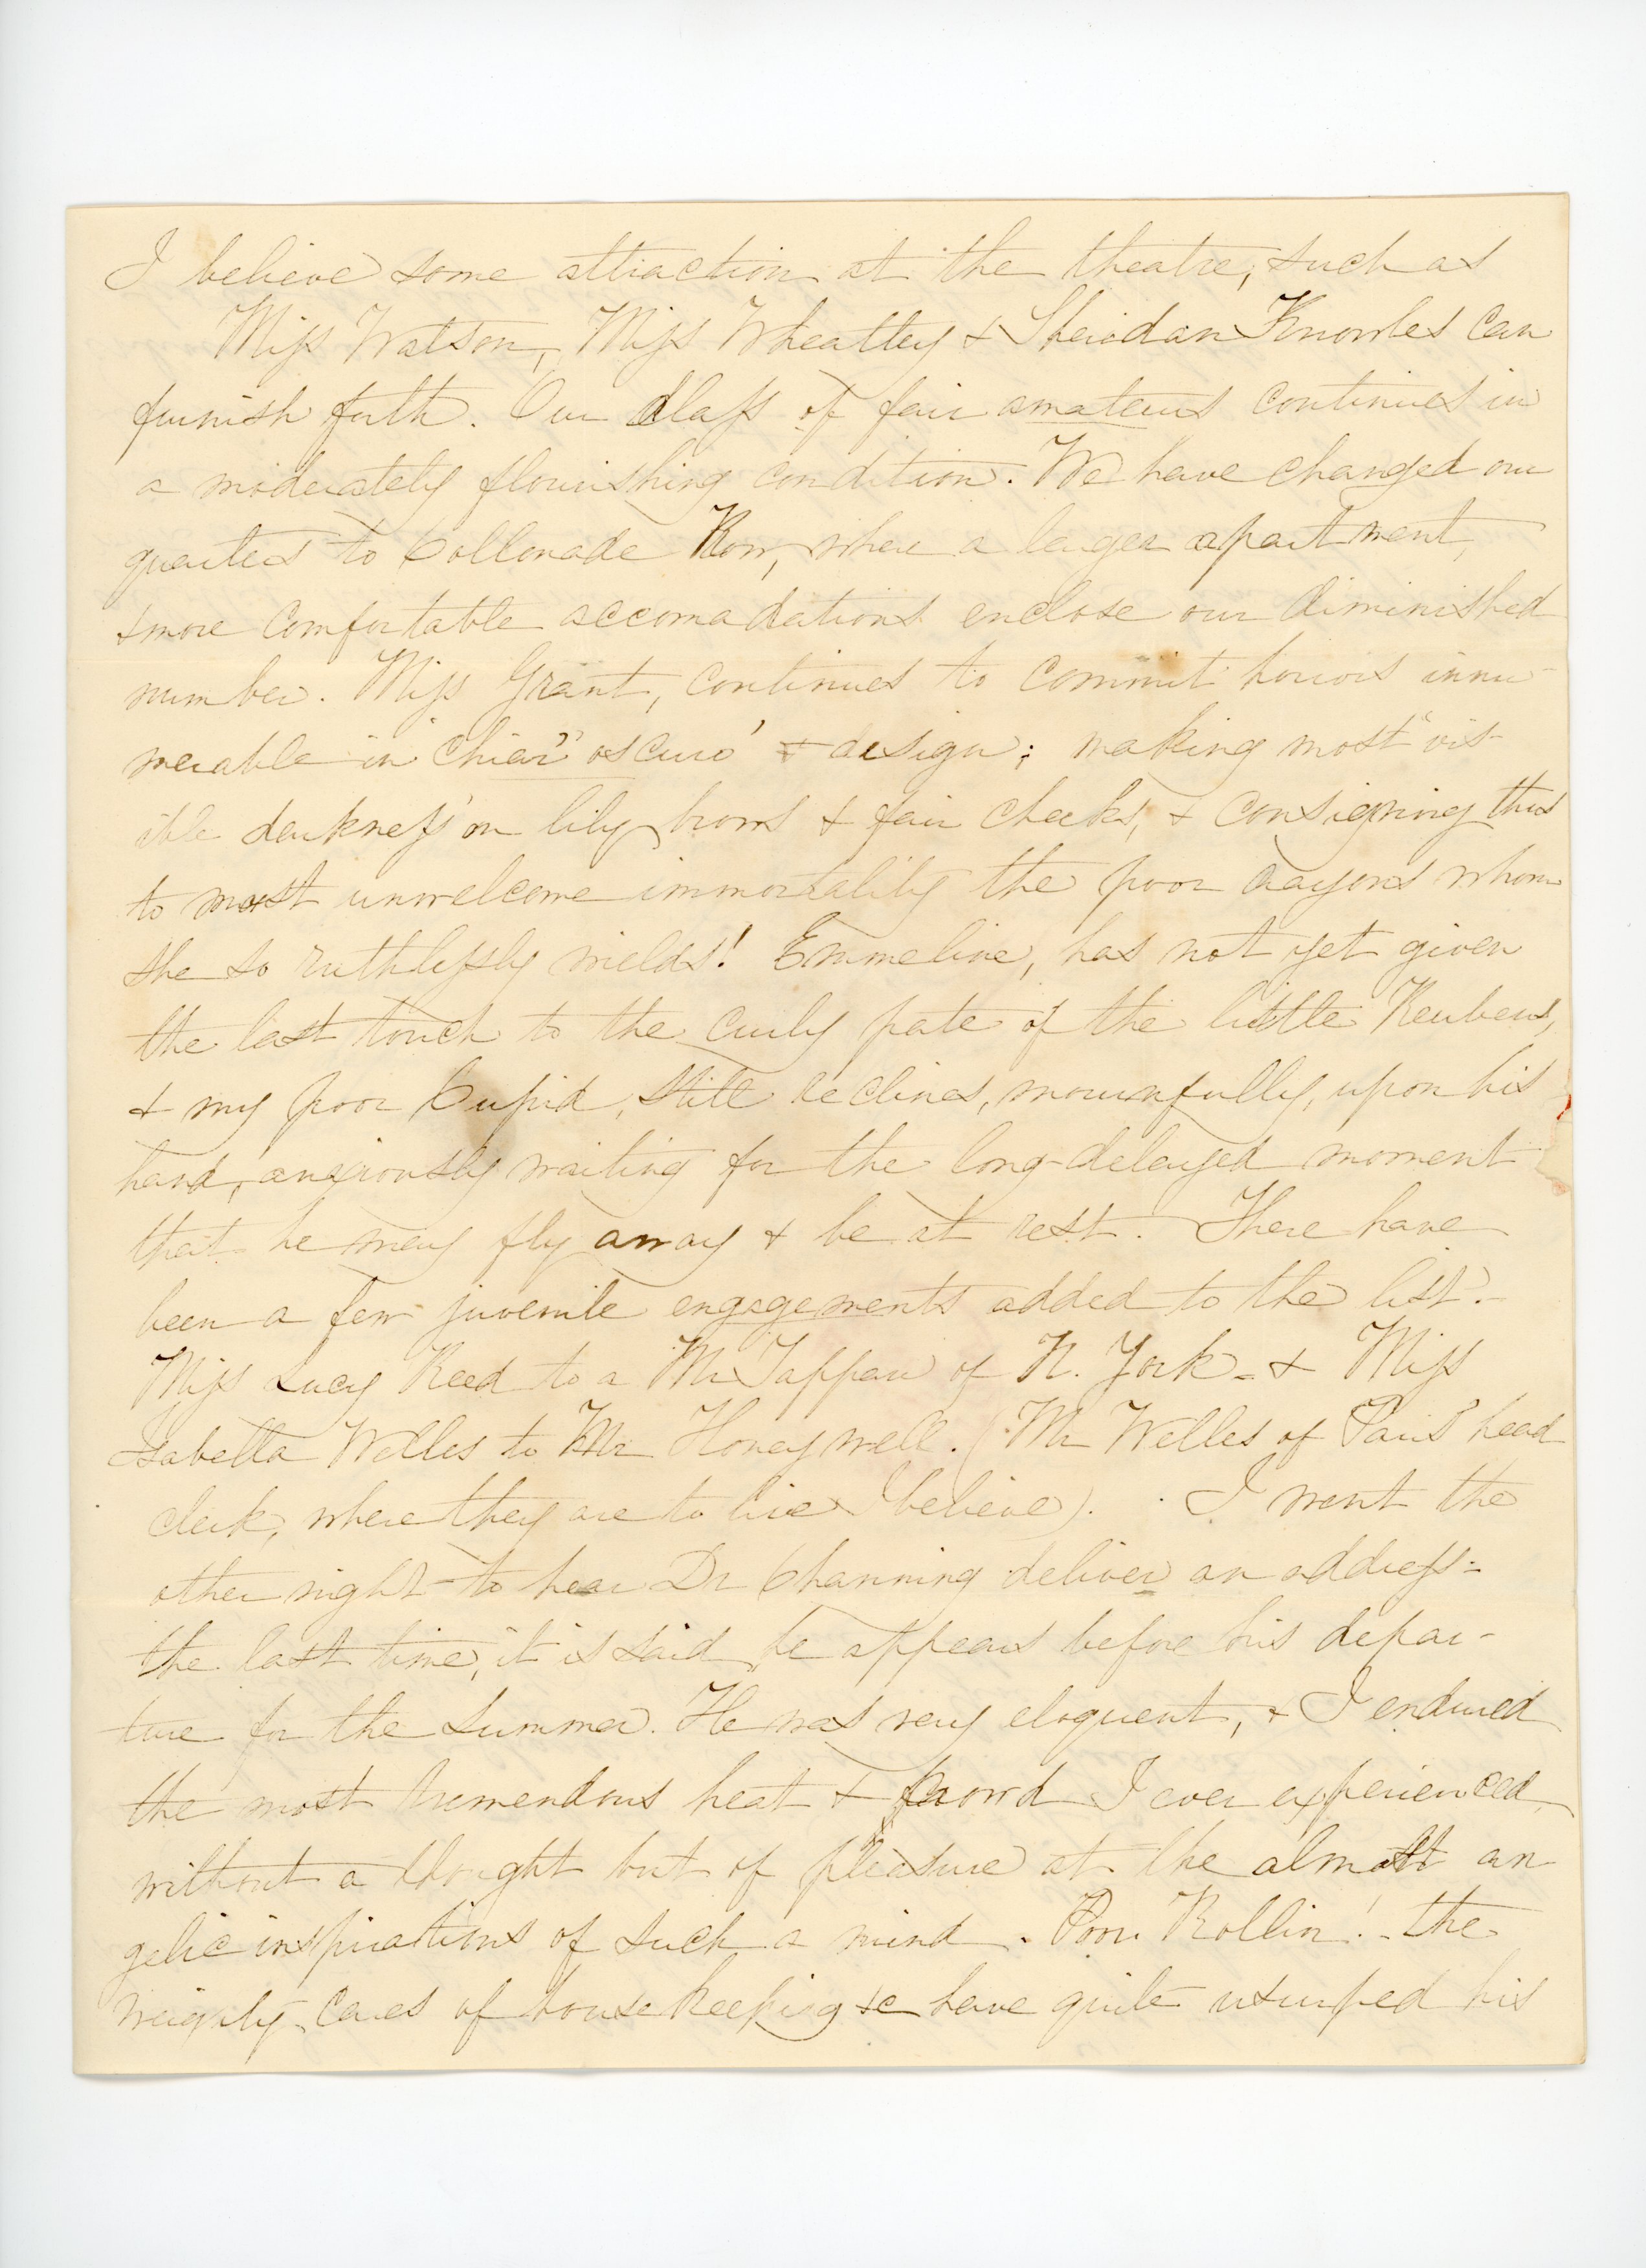 I believe some attraction at the theatre, such as
Miss Watson, Miss Wheatley & Sheridan Knowles can
furnish forth. Our class of fair amateurs continues in
a moderately flourishing condition. We have changed our
quarters to Collonade Row, where a larger apartment,
& more comfortable accomadations enclose our diminished
number. Miss Grant, continues to commit horrors innu-
merable in "chiar" oscuro' & design; making most "vis-
ible darkness' on lily brows & fair cheeks, & consigning thus
to most unwelcome immortality the poor crayons whom
she so ruthlessly wields! Emmeline, has not yet given
the last touch to the curly pate of the little Reubens,
& my poor Cupid, still reclines, mournfully, upon his
hand, anxiously waiting for the long-delayed moment
that he may fly away & be at rest. There have
been a few juvenile engagements added to the list.-
Miss Lucy Reed to a Mr Tappan of N. York - & Miss
Isabella Welles to Mr Honeywell. (Mr Welles of Paris' head
clerk, where they are to live I believe). I went the
other night to hear Dr Channing deliver an address-
the last time, it is said, he appears before his depar-
ture for the summer. He was very eloquent, & I endured
the most tremendous heat & crowd I ever experienced,
without a thought but of pleasure at the almost an
gelic inspirations of such a mind. Poor Rollin! - the
weighty cares of house keeping &c have quite usurped his